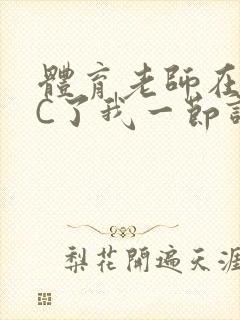 體育老師在
C了我一節
梨花開遍天涯